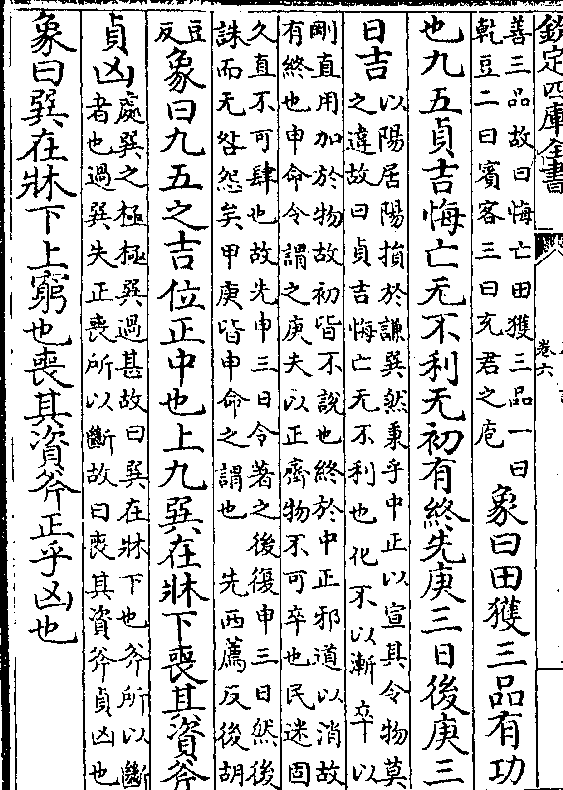 欽定四庫全書
卷六
善三品故曰悔亡田獲三品一曰
乾豆二曰賓客三曰充君之庖
象曰田獲三品有功
也九五貞吉悔亡无不利无初有終先庚三日後庚三
日吉
以陽居陽損於謙巽然秉乎中正以宣其令物莫
之違故曰貞吉悔亡无不利也化不以漸卒以
剛直用加於物故初皆不說也終於中正邪道以消故
有終也申命令謂之庚夫以正齊物不可卒也民迷固
久直不可肆也故先申三日令著之後復申三日然後
誅而无咎怨矣甲庚皆申命之謂也　先西薦反後胡
豆
反
象曰九五之吉位正中也上九巽在牀下喪其資斧
貞凶
處巽之極極巽過甚故曰巽在牀下也斧所以斷
者也過巽失正喪所以斷故曰喪其資斧貞凶也
象曰巽在牀下上窮也喪其資斧正乎凶也